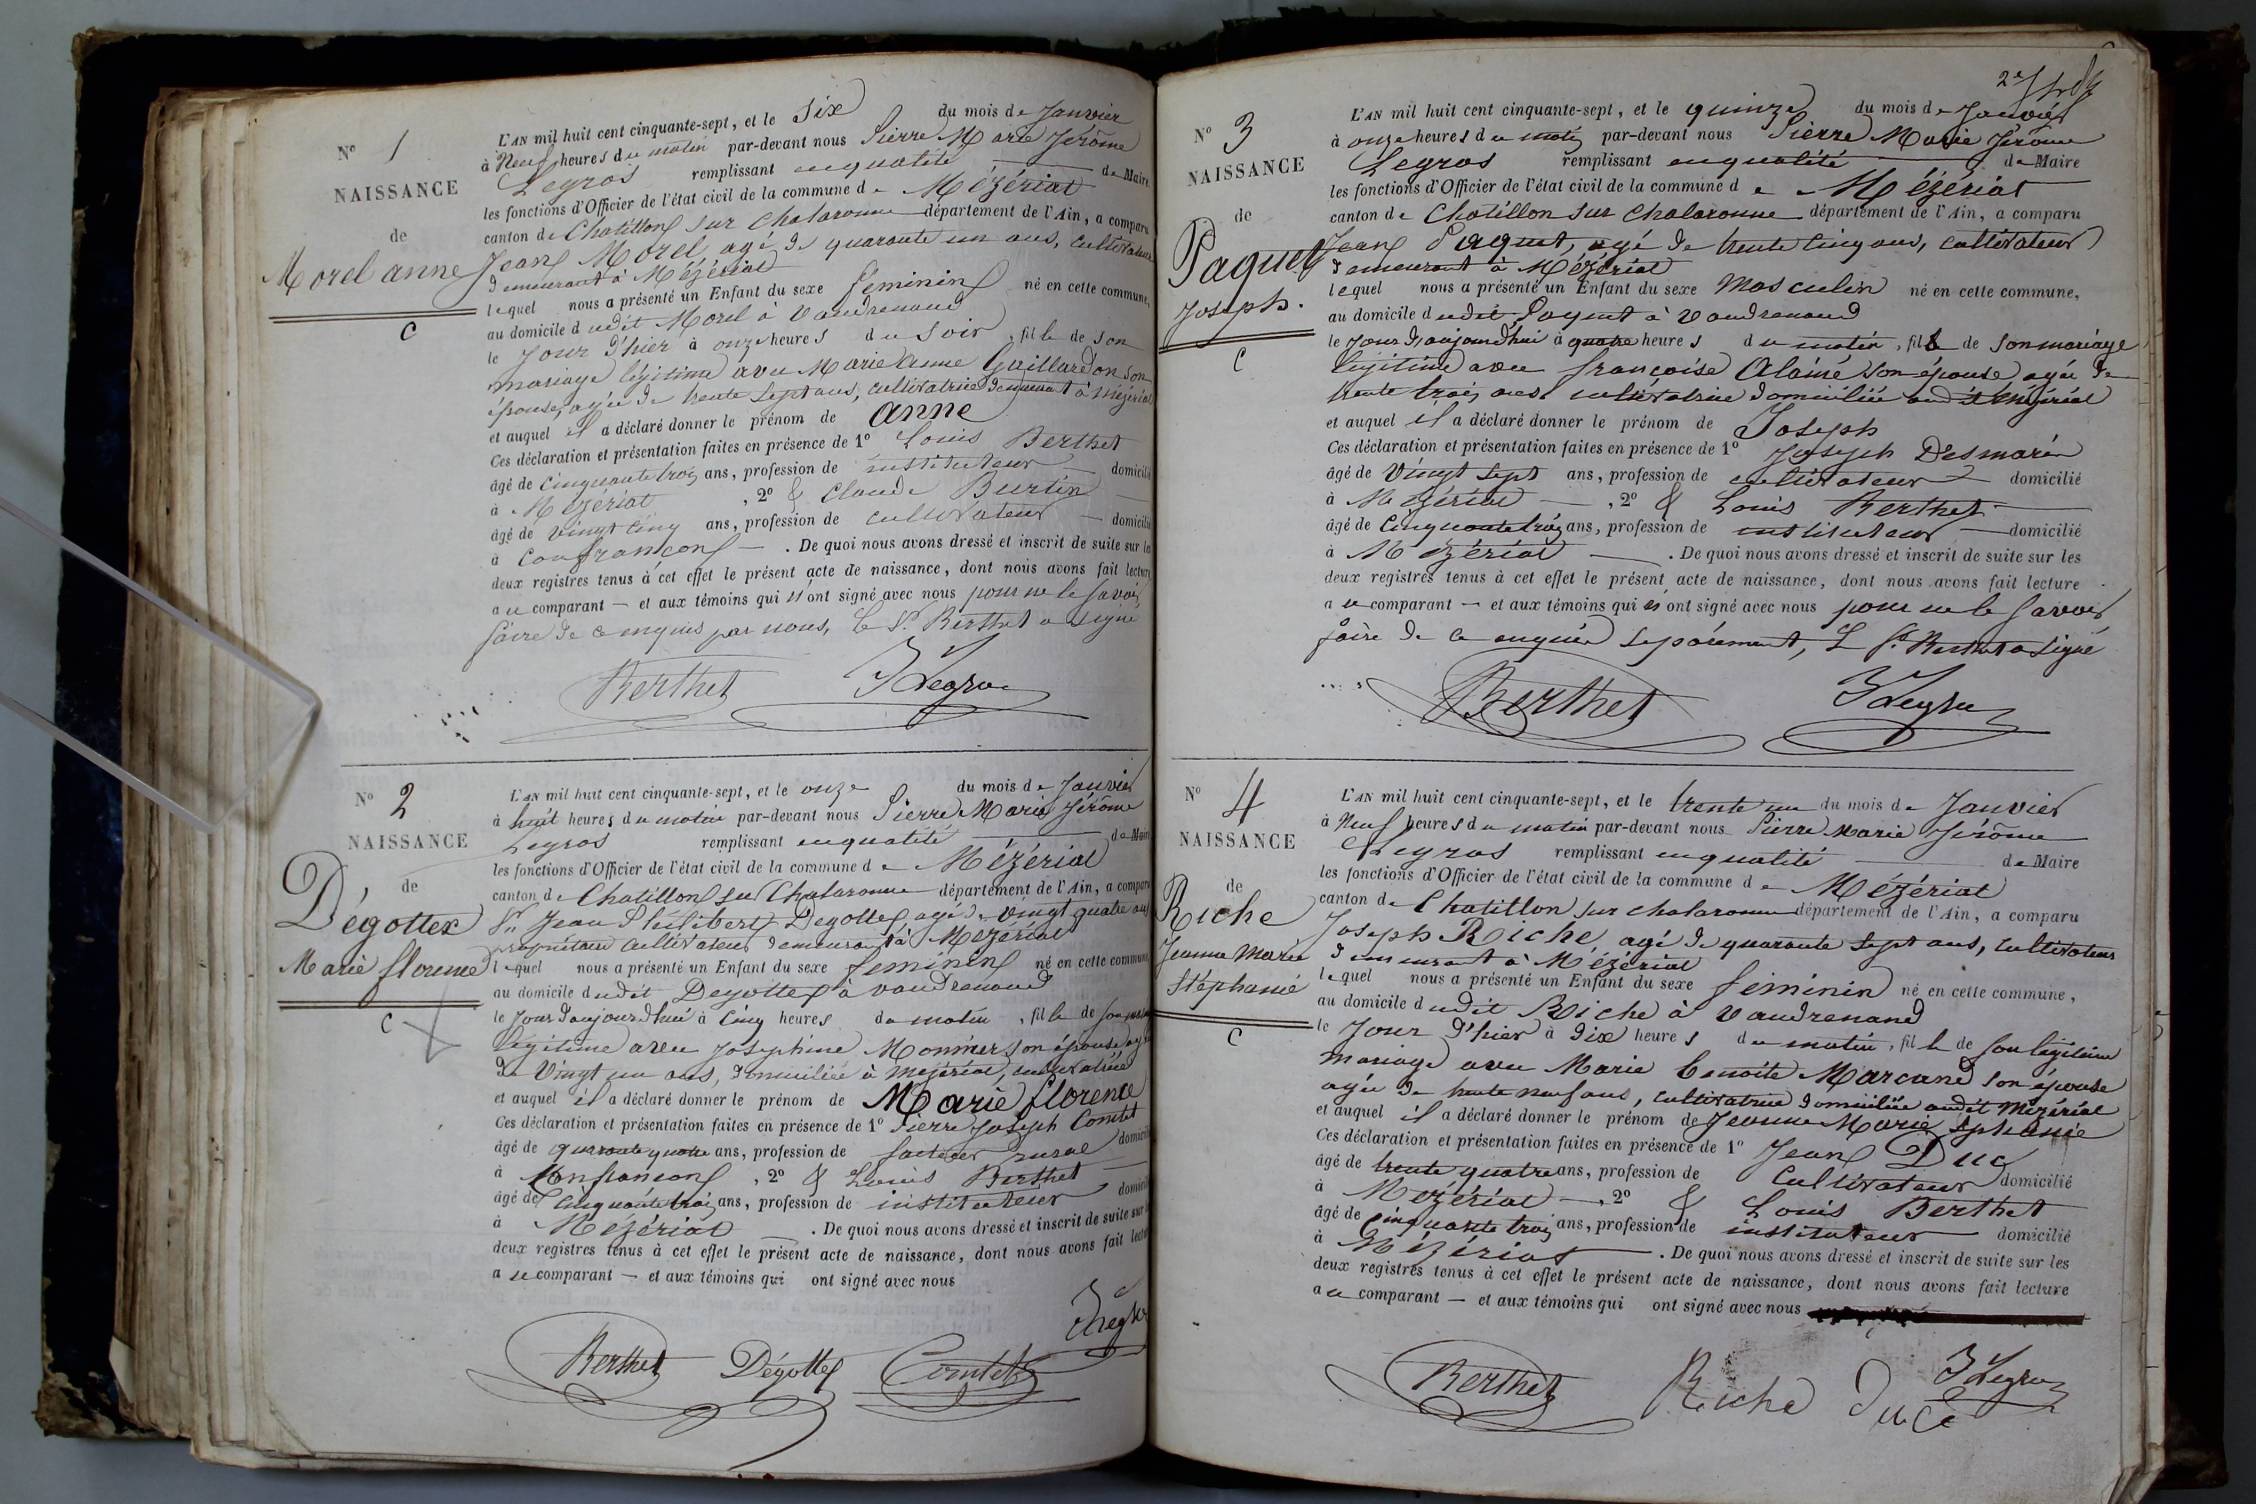 N° 1
NAISSANCE
de
Morel anne
C
L'AN mil huit cent cinquante-sept, et le Six du mois de Janvier
à Neuf heures du matin par-devant nous Pierre Marie Jérôme
Legros remplissant en qualité de Maire
les fonctions d'Officier de l'état civil de la commune de Mézériat
canton de Chatillon sur Chalaronne département de l'Ain, a comparu
Jean Morel agé de quarante un ans, cultivateur
demeurant à Mézériat
lequel nous a présenté un Enfant du sexe féminin né en cette commune,
au domicile dudit Morel à Vaudrenand
le Jour d'hier à onze heures du soir, fille de son
mariage légitime avec Marie Anne Guillardon son
épouse, agée de trente sept ans, cultivatrice demeurant à Mézériat
et auquel il a déclaré donner le prénom de anne
Ces déclaration et présentation faites en présence de 1° Louis Berthet
âgé de cinquante trois ans, profession de instituteur domicilié
à Mézériat , 2° & Claude Burtin
âgé de vingt cinq ans, profession de cultivateur domicilié
à Confrançon . De quoi nous avons dressé et inscrit de suite sur les
deux registres tenus à cet effet le présent acte de naissance, dont nous avons fait lecture
au comparant — et aux témoins qui n'ont signé avec nous pour ne le savoir
faire de ce enquis par nous, le Sr Berthet a signé
Berthet JLegros
N° 2
NAISSANCE
de
Dégottex
Marie florence
C
L'AN mil huit cent cinquante-sept, et le onze du mois de Janvier
à huit heures du matin par-devant nous Pierre Marie Jérôme
Legros remplissant en qualité de Maire
les fonctions d'Officier de l'état civil de la commune de Mézériat
canton de Chatillon sur Chalaronne département de l'Ain, a comparu
Sr Jean Philibert Dégottex agé de vingt quatre ans
propriétaire cultivateur demeurant à Mézériat
lequel nous a présenté un Enfant du sexe féminin né en cette commune,
au domicile dudit Degottex à Vaudrenand
le Jour d'aujourd'hui à cinq heures du matin, fille de son mariage
légitime avec Joséphine Monnier son épouse agée
de vingt un ans, domiciliée à Mézériat, cultivatrice
et auquel il a déclaré donner le prénom de Marie florence
Ces déclaration et présentation faites en présence de 1° Pierre Joseph Comtet
âgé de quarante quatre ans, profession de facteur rural domicilié
à Confrançon , 2° & Louis Berthet
âgé de cinquante trois ans, profession de instituteur domicilié
à Mézériat . De quoi nous avons dressé et inscrit de suite sur les
deux registres tenus à cet effet le présent acte de naissance, dont nous avons fait lecture
au comparant — et aux témoins qui ont signé avec nous
JLegros
Berthet Dégottex Comtet
N° 3
NAISSANCE
de
Paquet
Joseph.
C
L'AN mil huit cent cinquante-sept, et le quinze du mois de Janvier
à onze heures du matin par-devant nous Pierre Marie Jérôme
Legros remplissant en qualité de Maire
les fonctions d'Officier de l'état civil de la commune de Mézériat
canton de Chatillon sur Chalaronne département de l'Ain, a comparu
Jean Paquet, agé de trente cinq ans, cultivateur
demeurant à Mézériat
lequel nous a présenté un Enfant du sexe Masculin né en cette commune,
au domicile dudit Paquet à Vaudrenand
le Jour d'aujourd'hui à quatre heures du matin, fils de son mariage
légitime avec françoise Alainé son épouse agée de
trente trois ans cultivatrice domiciliée audit Mézériat
et auquel il a déclaré donner le prénom de Joseph
Ces déclaration et présentation faites en présence de 1° Joseph Desmaris
âgé de vingt sept ans, profession de cultivateur domicilié
à Mézériat , 2° & Louis Berthet
âgé de cinquante trois ans, profession de instituteur domicilié
à Mézériat . De quoi nous avons dressé et inscrit de suite sur les
deux registres tenus à cet effet le présent acte de naissance, dont nous avons fait lecture
au comparant — et aux témoins qui n'ont signé avec nous pour ne le savoir
faire de ce enquis séparément, le Sr Berthet a signé
Berthet JLegros
N° 4
NAISSANCE
de
Riche
Jeanne Marie
Stéphanie
C
L'AN mil huit cent cinquante-sept, et le trente un du mois de Janvier
à Neuf heures du matin par-devant nous Pierre Marie Jérôme
Legros remplissant en qualité de Maire
les fonctions d'Officier de l'état civil de la commune de Mézériat
canton de Chatillon sur Chalaronne département de l'Ain, a comparu
Joseph Riche, agé de quarante sept ans, cultivateur
demeurant à Mézériat
lequel nous a présenté un Enfant du sexe féminin né en cette commune,
au domicile dudit Riche à Vaudrenand
le Jour d'hier à dix heures du matin, fille de son légitime
mariage avec Marie Benoite Marcand son épouse
agée de trente neuf ans, cultivatrice domiciliée audit Mézériat
et auquel il a déclaré donner le prénom de Jeanne Marie Stéphanie
Ces déclaration et présentation faites en présence de 1° Jean Duc
âgé de trente quatre ans, profession de cultivateur domicilié
à Mézériat , 2° & Louis Berthet
âgé de cinquante trois ans, profession de instituteur domicilié
à Mézériat . De quoi nous avons dressé et inscrit de suite sur les
deux registres tenus à cet effet le présent acte de naissance, dont nous avons fait lecture
au comparant — et aux témoins qui ont signé avec nous
Berthet Riche Duc JLegros